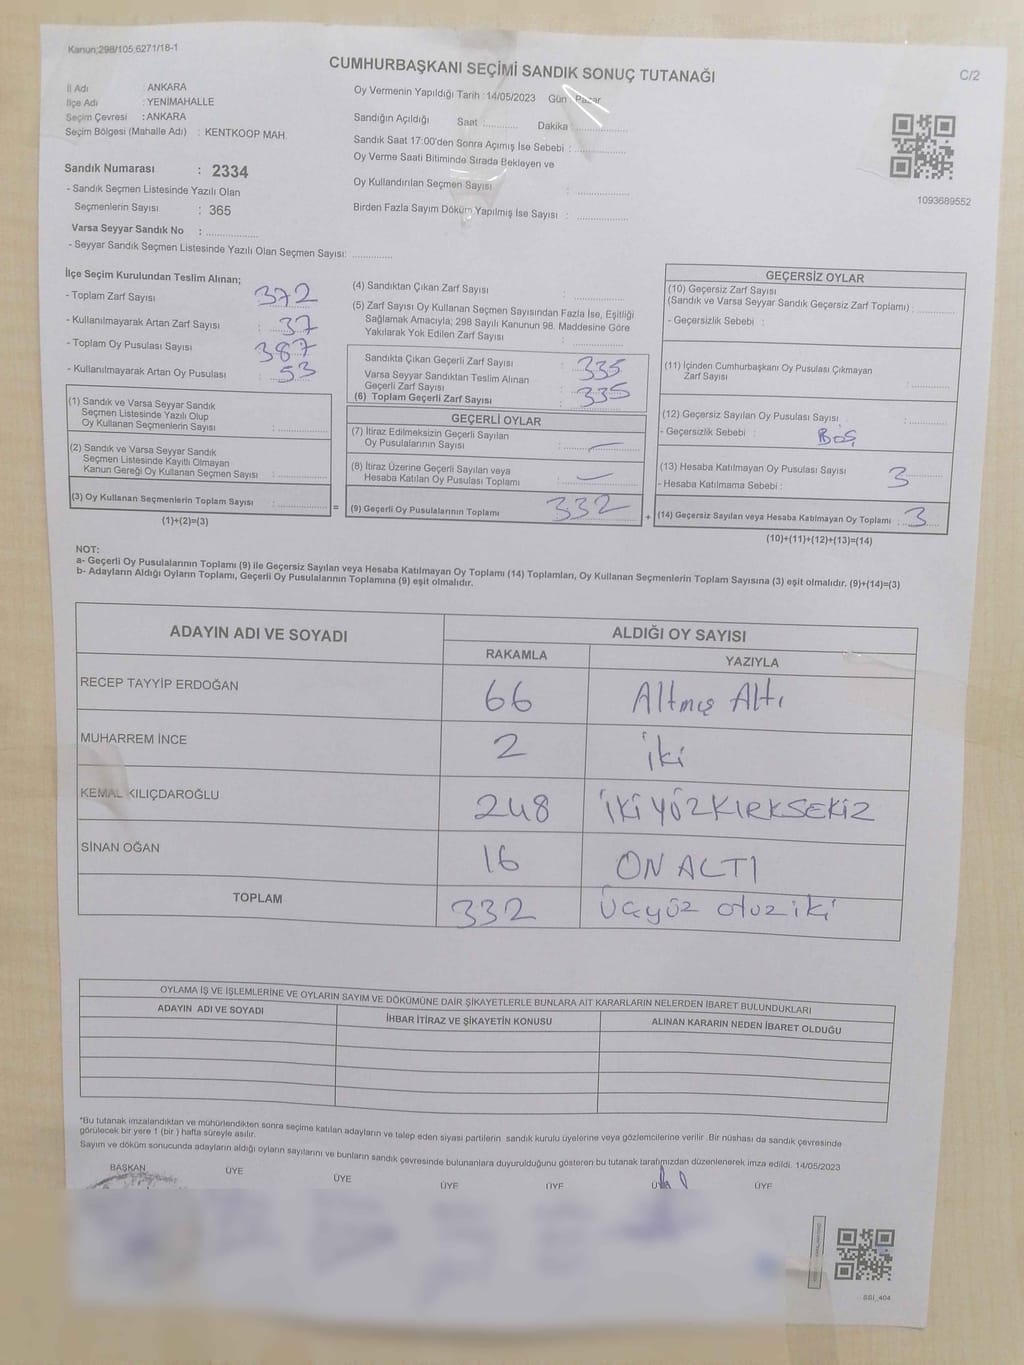 Kanun;298/105,6271/18-1
CUMHURBAŞKANI SEÇİMİ SANDIK SONUÇ TUTANAĞI
C/2
İl Adı : ANKARA
İlçe Adı : YENİMAHALLE
Seçim Çevresi : ANKARA
Seçim Bölgesi (Mahalle Adı) : KENTKOOP MAH.
Sandık Numarası : 2334
- Sandık Seçmen Listesinde Yazılı Olan
Seçmenlerin Sayısı : 365
Varsa Seyyar Sandık No : ..............
- Seyyar Sandık Seçmen Listesinde Yazılı Olan Seçmen Sayısı: ............
Oy Vermenin Yapıldığı Tarih :14/05/2023 Gün : Pazar
Sandığın Açıldığı Saat ........... Dakika ...............
Sandık Saat 17:00'den Sonra Açımış İse Sebebi : ...............
Oy Verme Saati Bitiminde Sırada Bekleyen ve
Oy Kullandırılan Seçmen Sayısı : ...............
Birden Fazla Sayım Döküm Yapılmış İse Sayısı : ...............
1093689552
İlçe Seçim Kurulundan Teslim Alınan;
- Toplam Zarf Sayısı 372
- Kullanılmayarak Artan Zarf Sayısı : 37
- Toplam Oy Pusulası Sayısı 387
- Kullanılmayarak Artan Oy Pusulası : 53
(1) Sandık ve Varsa Seyyar Sandık
Seçmen Listesinde Yazılı Olup
Oy Kullanan Seçmenlerin Sayısı : ...............
(2) Sandık ve Varsa Seyyar Sandık
Seçmen Listesinde Kayıtlı Olmayan
Kanun Gereği Oy Kullanan Seçmen Sayısı : ...............
(3) Oy Kullanan Seçmenlerin Toplam Sayısı : ...............
(1)+(2)=(3)
=
(4) Sandıktan Çıkan Zarf Sayısı : ...............
(5) Zarf Sayısı Oy Kullanan Seçmen Sayısından Fazla İse, Eşitliği
Sağlamak Amacıyla; 298 Sayılı Kanunun 98. Maddesine Göre
Yakılarak Yok Edilen Zarf Sayısı : ...............
Sandıkta Çıkan Geçerli Zarf Sayısı : 335
Varsa Seyyar Sandıktan Teslim Alınan
Geçerli Zarf Sayısı
(6) Toplam Geçerli Zarf Sayısı : 335
GEÇERLİ OYLAR
(7) İtiraz Edilmeksizin Geçerli Sayılan
Oy Pusulalarının Sayısı : —
(8) İtiraz Üzerine Geçerli Sayılan veya
Hesaba Katılan Oy Pusulası Toplamı : —
(9) Geçerli Oy Pusulalarının Toplamı 332
+
GEÇERSİZ OYLAR
(10) Geçersiz Zarf Sayısı
(Sandık ve Varsa Seyyar Sandık Geçersiz Zarf Toplamı) : ............
- Geçersizlik Sebebi :
(11) İçinden Cumhurbaşkanı Oy Pusulası Çıkmayan
Zarf Sayısı : ............
(12) Geçersiz Sayılan Oy Pusulası Sayısı : ............
- Geçersizlik Sebebi : Boş
(13) Hesaba Katılmayan Oy Pusulası Sayısı 3
- Hesaba Katılmama Sebebi :
(14) Geçersiz Sayılan veya Hesaba Katılmayan Oy Toplamı : 3
(10)+(11)+(12)+(13)=(14)
NOT:
a- Geçerli Oy Pusulalarının Toplamı (9) ile Geçersiz Sayılan veya Hesaba Katılmayan Oy Toplamı (14) Toplamları, Oy Kullanan Seçmenlerin Toplam Sayısına (3) eşit olmalıdır. (9)+(14)=(3)
b- Adayların Aldığı Oyların Toplamı, Geçerli Oy Pusulalarının Toplamına (9) eşit olmalıdır.
ADAYIN ADI VE SOYADI
ALDIĞI OY SAYISI
RAKAMLA YAZIYLA
RECEP TAYYİP ERDOĞAN 66 Altmış Altı
MUHARREM İNCE 2 iki
KEMAL KILIÇDAROĞLU 248 İKİ YÜZKIRKSEKİZ
SİNAN OĞAN 16 ON ALTI
TOPLAM 332 Üçyüz otuz iki
OYLAMA İŞ VE İŞLEMLERİNE VE OYLARIN SAYIM VE DÖKÜMÜNE DAİR ŞİKAYETLERLE BUNLARA AİT KARARLARIN NELERDEN İBARET BULUNDUKLARI
ADAYIN ADI VE SOYADI İHBAR İTİRAZ VE ŞİKAYETİN KONUSU ALINAN KARARIN NEDEN İBARET OLDUĞU
*Bu tutanak imzalandıktan ve mühürlendikten sonra seçime katılan adayların ve talep eden siyasi partilerin sandık kurulu üyelerine veya gözlemcilerine verilir .Bir nüshası da sandık çevresinde
görülecek bir yere 1 (bir ) hafta süreyle asılır.
Sayım ve döküm sonucunda adayların aldığı oyların sayılarını ve bunların sandık çevresinde bulunanlara duyurulduğunu gösteren bu tutanak tarafımızdan düzenlenerek imza edildi. 14/05/2023
BAŞKAN ÜYE ÜYE ÜYE ÜYE ÜYE ÜYE
SSI_404